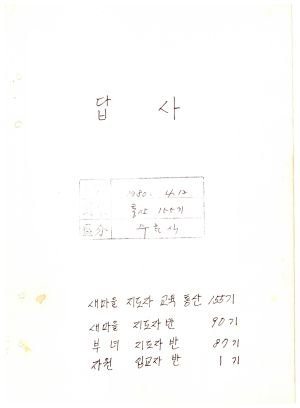 답 사
1980. 4.12
통산 155기
區分 수료식
새마을 지도자 교육 통산 155기
새마을 지도자 반 90기
부녀 지도자 반 87기
자원 입교자 반 1기